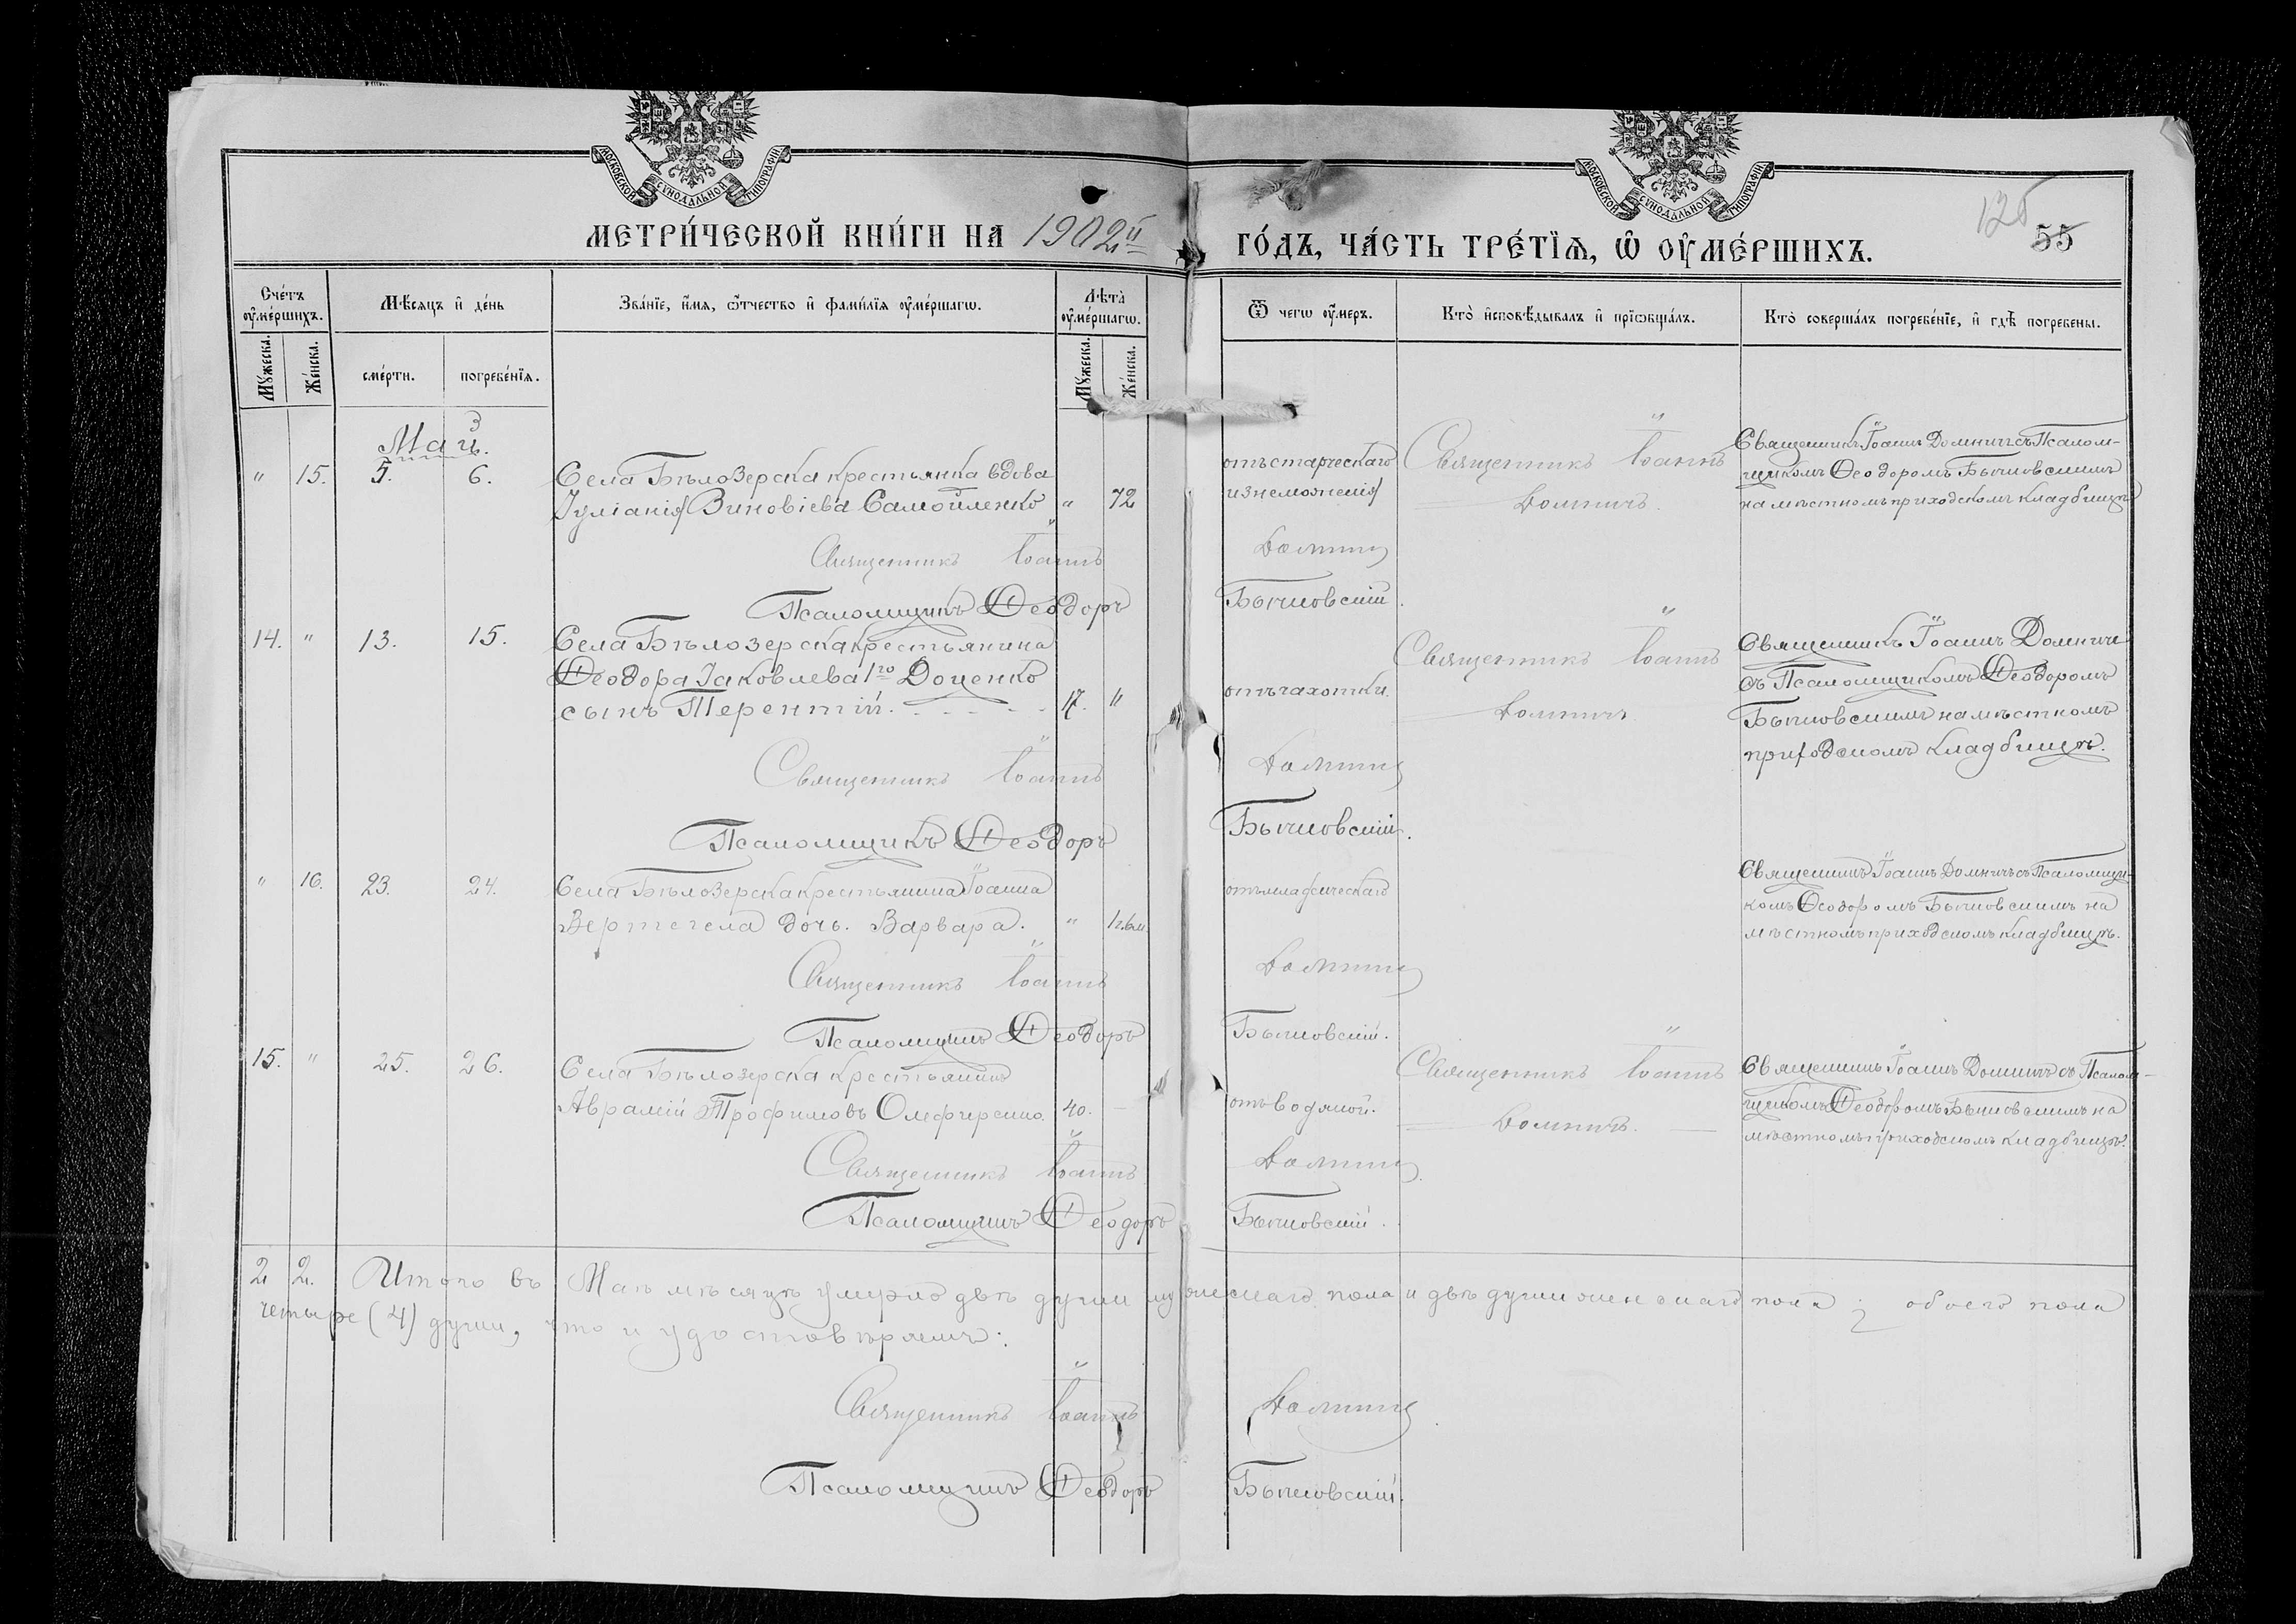 МОСКОВСКОЙ СѴНОДАЛЬНОЙ ТИПОГРАФІИ
МОСКОВСКОЙ СѴНОДАЛЬНОЙ ТИПОГРАФІИ
МЕТРИ́ЧЕСКОЙ КНИ́ГИ НА 1902й
ГО́ДЪ, ЧА́СТЬ ТРЕ́ТЇѦ, Ѡ ОУ҆МЕ́РШИХЪ.
125
55
Сче́тъ оу҆ме́ршихъ.
Мѣ́сяцъ и҆ де́нь
Зва́нїе, и҆́мя, ѻ҆́тчество и҆ фами́лїя оу҆ме́ршагѡ.
Лѣта̀ оу҆ме́ршагѡ.
Ѿ чегѡ оу҆́меръ.
Кто̀ и҆сповѣ́дывалъ и҆ прїѡбща́лъ.
Кто̀ соверша́лъ погребе́нїе, и҆ гдѣ̀ погребены.
Мꙋ́жеска.
Же́нска.
сме́рти.
погребе́нїя.
Мꙋ́жеска.
Же́нска.
Май.
" 15. 5. 6. Села Бѣлозерска крестьянка вдова
Іуліанія Зиновіева Самойленко " 72
отъ старческаго
изнеможенія
Священникъ Іоаннъ
Домничъ.
Священникъ Іоаннъ Домничъ съ Псалом-
щикомъ Ѳеодоромъ Бычковскимъ
на мѣстномъ приходскомъ кладбищѣ
Священникъ Іоаннъ Домничъ
Псаломщикъ Ѳеодоръ Бычковскій.
14. " 13. 15. Села Бѣлозерска крестьянина
Ѳеодора Іаковлева 1го Доценко
сынъ Терентій. 17. "
отъ чахотки.
Священникъ Іоаннъ
Домничъ
Священникъ Іоаннъ Домничъ
съ Псаломщикомъ Ѳеодоромъ
Бычковскимъ на мѣстномъ
приходскомъ кладбищѣ.
Священникъ Іоаннъ Домничъ
Псаломщикъ Ѳеодоръ Бычковскій.
" 16. 23. 24. Села Бѣлозерска крестьянина Іоанна
Вертегела дочь Варвара. " 1г.6м.
отъ младенческаго
Священникъ Іоаннъ Домничъ съ Псаломщи-
комъ Ѳеодоромъ Бычковскимъ на
мѣстномъ приходскомъ кладбищѣ.
Священникъ Іоаннъ Домничъ
Псаломщикъ Ѳеодоръ Бычковскій.
15. " 25. 26. Села Бѣлозерска крестьянинъ
Аврамій Трофимовъ Олефиренко. 40. –
отъ водяной.
Священникъ Іоаннъ
Домничъ.
Священникъ Іоаннъ Домничъ съ Псалом-
щикомъ Ѳеодоромъ Бычковскимъ на
мѣстномъ приходскомъ кладбищѣ.
Священникъ Іоаннъ Домничъ.
Псаломщикъ Ѳеодоръ Бычковскій.
2 2. Итого въ Маѣ мѣсяцѣ умерло двѣ души мужескаго пола и двѣ души женскаго пола; обоего пола
четыре (4) души, что и удостовѣряемъ:
Священникъ Іоаннъ Домничъ.
Псаломщикъ Ѳеодоръ Бычковскій.